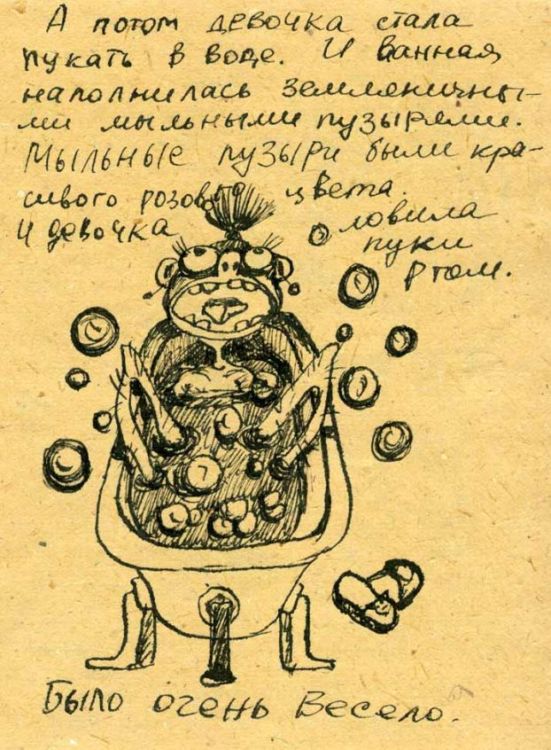 А потом девочка стала
пукать в воде. И ванная
наполнилась земляничны-
ми мыльными пузырями.
Мыльные пузыри были кра-
сивого розового цвета.
И девочка ловила
пуки
ртом.
Было очень весело.